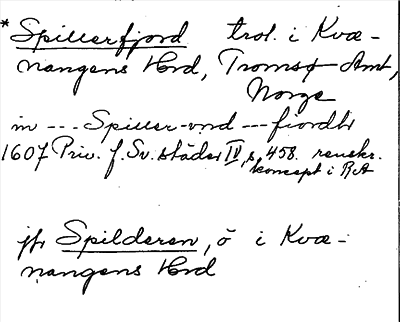 *Spillerfjord trol. i Kvæ-
nangens Hrd, Tromsø Amt,
Norge
in --- Spiller-vnd --- fiordtr
1607 Priv. f. Sv. städer IV, s. 458. renskr.
koncept i RA
jfr Spilderen, ö i Kvæ-
nangens Hrd